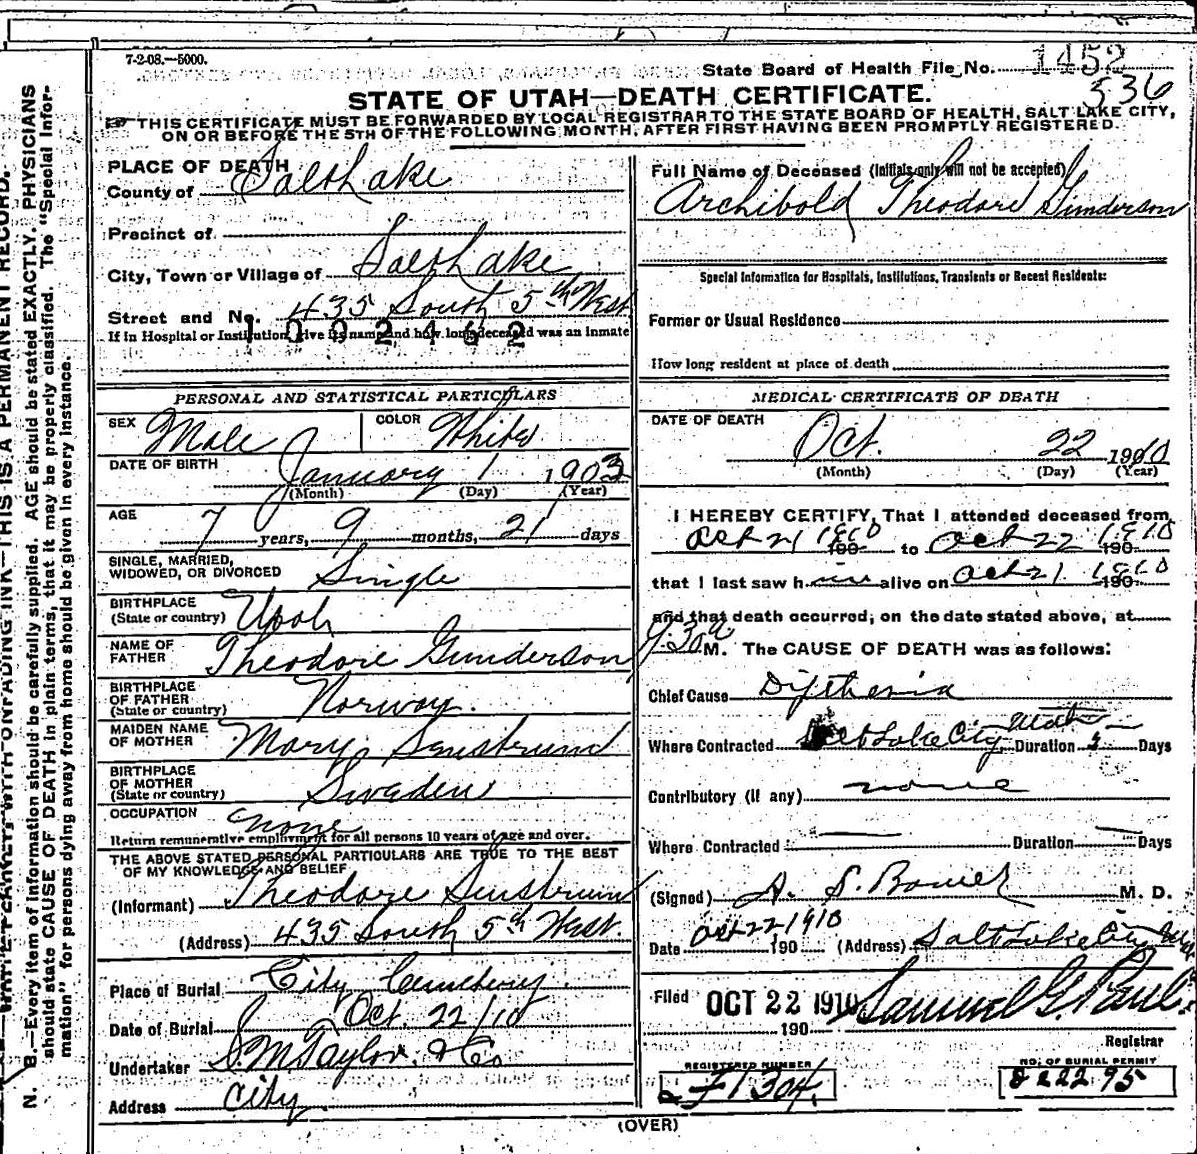 7-2-08.—5000.
State Board of Health File No. 1452
536
STATE OF UTAH—DEATH CERTIFICATE.
THIS CERTIFICATE MUST BE FORWARDED BY LOCAL REGISTRAR TO THE STATE BOARD OF HEALTH, SALT LAKE CITY,
ON OR BEFORE THE 5TH OF THE FOLLOWING MONTH, AFTER FIRST HAVING BEEN PROMPTLY REGISTERED.
PLACE OF DEATH
County of Salt Lake
Precinct of
City, Town or Village of Salt Lake
Street and No. 435 South 5th West
1002462
If in Hospital or Institution, give its name and how long deceased was an inmate
PERSONAL AND STATISTICAL PARTICULARS
SEX Male COLOR White
DATE OF BIRTH January 1 1903
(Month) (Day) (Year)
AGE 7 years, 9 months, 21 days
SINGLE, MARRIED,
WIDOWED, OR DIVORCED Single
BIRTHPLACE
(State or country) Utah
NAME OF
FATHER Theodore Gunderson
BIRTHPLACE
OF FATHER
(State or country) Norway.
MAIDEN NAME
OF MOTHER Mary
BIRTHPLACE
OF MOTHER
(State or country) Sweden
OCCUPATION None
Return remunerative employment for all persons 10 years of age and over.
THE ABOVE STATED PERSONAL PARTICULARS ARE TRUE TO THE BEST
OF MY KNOWLEDGE AND BELIEF
(Informant) Theodore
(Address) 435 South 5th West.
Place of Burial City Cemetery.
Date of Burial Oct. 22/10
Undertaker S. M Taylor & Co
Address City
Full Name of Deceased (Initials only will not be accepted)
Archibold Theodore Gunderson
Special Information for Hospitals, Institutions, Transients or Recent Residents:
Former or Usual Residence
How long resident at place of death
MEDICAL CERTIFICATE OF DEATH
DATE OF DEATH
Oct. 22 1910
(Month) (Day) (Year)
I HEREBY CERTIFY, That I attended deceased from
Oct 21 1910 190 to Oct 22 1910 190
that I last saw h im alive on Oct 21 1910 190
and that death occurred, on the date stated above, at
M. The CAUSE OF DEATH was as follows:
Chief Cause Diftheria
Where Contracted Salt Lake City Utah Duration Days
Contributory (if any) none
Where Contracted Duration Days
(Signed) A. S. Bower M. D.
Date Oct 22 1910 190 (Address) Salt Lake City Utah
Filed OCT 22 1910 Samuel G. Paul.
190
Registrar
REGISTERED NUMBER
NO. OF BURIAL PERMIT
(OVER)
N. B.—Every item of information should be carefully supplied. AGE should be stated EXACTLY. PHYSICIANS
should state CAUSE OF DEATH in plain terms, that it may be properly classified. The "Special Infor-
mation" for persons dying away from home should be given in every instance.